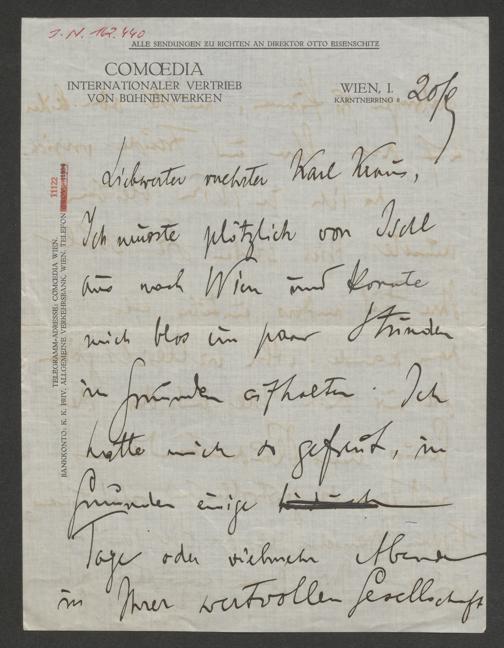 J. N. 162.440
ALLE SENDUNGEN ZU RICHTEN AN DIREKTOR OTTO EISENSCHITZ
COMŒDIA
INTERNATIONALER VERTRIEB
VON BÜHNENWERKEN
WIEN, I.
KÄRNTNERRING
TELEGRAMM-ADRESSE: COMŒDIA WIEN.
BANKKONTO: K. K. PRIV. ALLGEMEINE VERKEHRSBANK, WIEN. TELEFON
11122
Liebwerter verehrter Karl Kraus,
Ich musste plötzlich von Ischl
aus nach Wien und konnte
mich blos ein paar Stunden
in Gmunden aufhalten. Ich
hatte mich so gefreut, in
Gmunden einige
Tage oder vielmehr Abende
in Ihrer wertvollen Gesellschaft